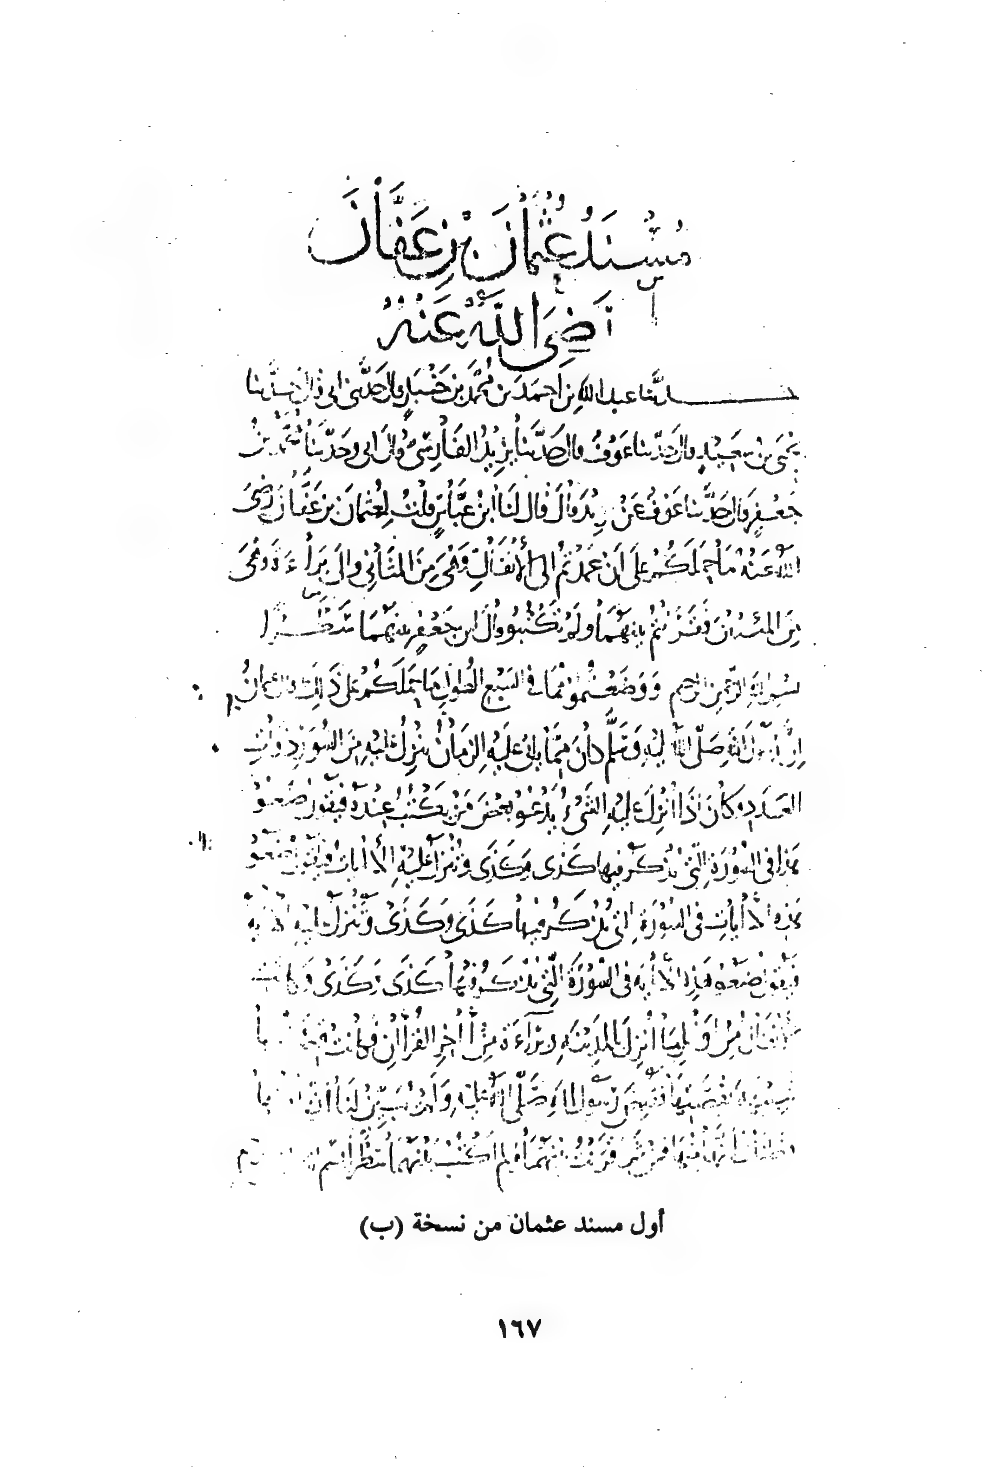 مسند عثمان بن عفان
رضي الله عنه
حدثنا عبد الله بن احمد بن محمد بن حنبل قال حدثني ابي قال حدثنا
يحيى بن سعيد قال حدثنا عوف قال حدثنا يزيد الفارسي قال ابي وحدثنا محمد بن
جعفر قال حدثنا عوف عن يزيد قال قال لنا ابن عباس قلت لعثمان بن عفان رضي
الله عنه ما حملكم على ان عمدتم الى الانفال وهي من المثاني والى براءة وهي
من المئين فقرنتم بينهما ولم تكتبوا قال ابن جعفر بينهما سطرا
بسم الله الرحمن الرحيم ووضعتموها في السبع الطول ما حملكم على ذلك قال عثمان
ان رسول الله صلى الله عليه وسلم كان مما ياتي عليه الزمان ينزل عليه من السور ذوات
العدد وكان اذا انزل عليه الشيء يدعو بعض من يكتب عنده فيقول ضعوا
هذا في السورة التي يذكر فيها كذى وكذى وتنزل عليه الايات فيقول ضعوا
هذه الايات في السورة التي يذكر فيها كذى وكذى وتنزل عليه الاية
فيقول ضعوا هذه الاية في السورة التي يذكر فيها كذى وكذى وكانت
الانفال من اول ما انزل بالمدينة وبراءة من اخر القران فكانت
قصتها فقبض رسول الله صلى الله عليه ولم يبين لنا انها
انها منها فمن ثم قرنت بينهما ولم اكتب بينهما سطرا بسم
أول مسند عثمان من نسخة (ب)
١٦٧